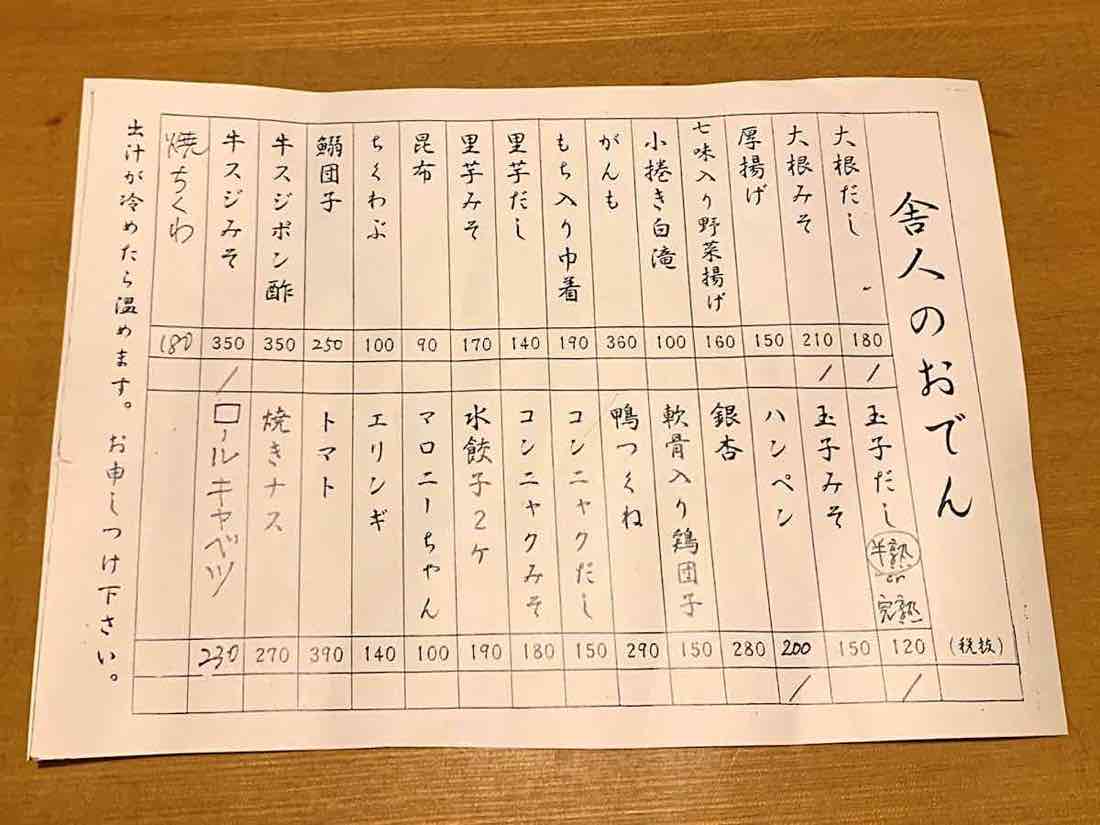 舎人のおでん
(税抜)
大根だし 180
大根みそ 210
厚揚げ 150
七味入り野菜揚げ 160
小捲き白滝 100
がんも 360
もち入り巾着 190
里芋だし 140
里芋みそ 170
昆布 90
ちくわぶ 100
鰯団子 250
牛スジポン酢 350
牛スジみそ 350
焼ちくわ 180
玉子だし 半熟 or 完熟 120
玉子みそ 150
ハンペン 200
銀杏 280
軟骨入り鶏団子 150
鴨つくね 290
コンニャクだし 150
コンニャクみそ 180
水餃子2ケ 190
マロニーちゃん 100
エリンギ 140
トマト 390
焼きナス 270
ロールキャベツ 230
出汁が冷めたら温めます。お申しつけ下さい。